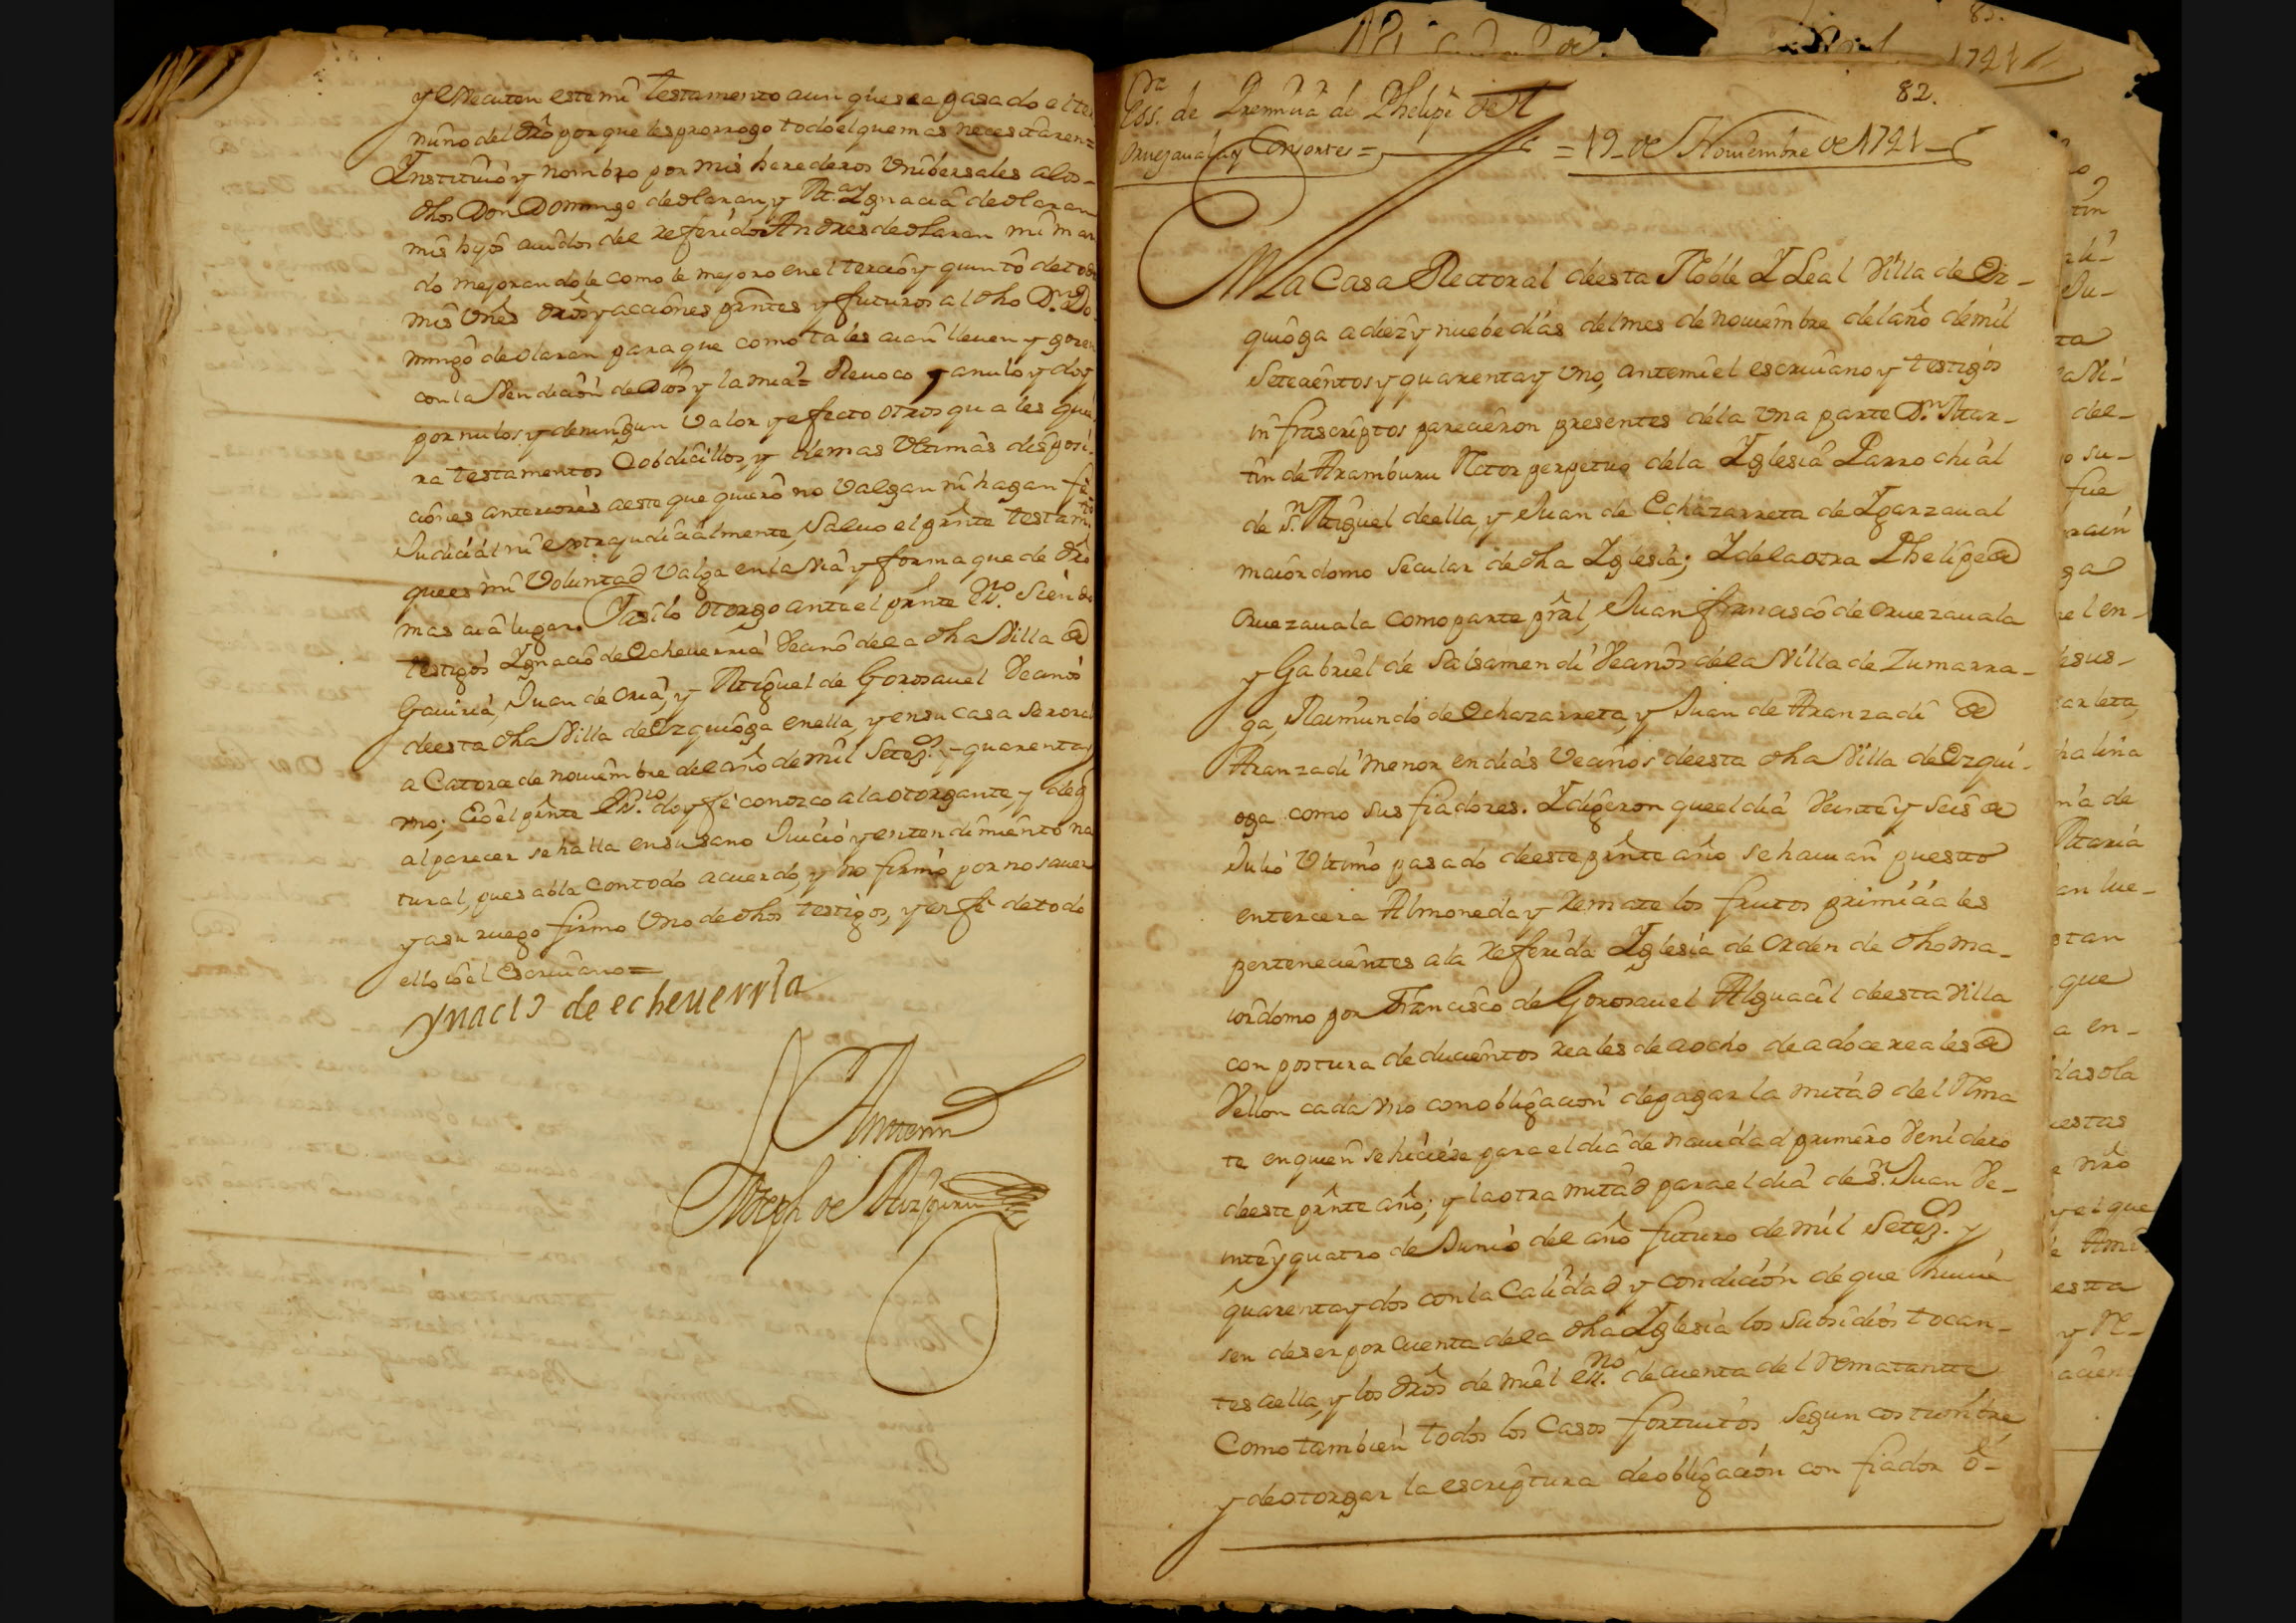 y executen este mi testamento aun que sea pasado el ter
mino del dro porque les prorrogo todo el que mas necesitaren=
Instituio y nombro por mis herederos Unibersales alos-
dhos Don Domingo de olaran, y Mª Ignacia de olaran
mis hijos auidos del referido Andres de olaran mi mari
do mejorandole como le mejoro en el tercio y quinto de todos
mis Vnes dros y acciones prntes y futuros al dho Dn Do-
mingo de olaran para que como tales aian lleuen y gozen
con la Vendicion de Dios y la mia= Reuoco y anulo y doy
por nulos y de ningun Valor y efecto otros quales quie
ra testamentos Cobdicillos, y demas Vltimas disposi-
ciones anteriores a este que quiero no Valgan ni hagan fe
Judicial ni extrajudicialmente, Saluo el prnte testamto
que es mi Voluntad Valga en la Via y forma que de dro
mas aia lugar. Y asi lo otorgo ante el prnte essno Siendo
testigos Ignacio de Echeuerria Vecino de la dha Villa de
Gauiria, Juan de oria, y Miguel de Gorosauel Vecinos
de esta dha Villa de Ezquioga en ella, y en su casa seroral
a Catorce de nouiembre del año de mil Setezos y quarenta y
vno; E io el prnte essno doy fe conozco ala otorgante, y de q
al parecer se halla en su sano Juicio y entendimiento na
tural, pues abla con todo acuerdo, y no firmo por no sauer
y a su ruego firmo Vno de dhos testigos, y en fe de todo
ello io el escriuano=
ynacio de echeuerria
Ante mi
Joseph de Aizpuru
82.
Essda de Premicia de Phelipe de
Oruezauala y Consortes=
=19 de Nouiembre de 1741
En la Casa Rectoral de esta Noble Y Leal Villa de Ez-
quioga a diez y nuebe dias del mes de nouiembre del año de mil
Setecientos y quarenta y Vno, ante mi el escriuano y testigos
infrascriptos parecieron presentes de la Vna parte Dn Mar-
tin de Aramburu Rector perpetuo de la Iglesia Parrochial
de Sn Miguel de ella, y Juan de Echazarreta de Igarzaual
maiordomo Secular de dha Iglesia; Y de la otra Phelipe de
oruezauala como parte prãl, Juan francisco de oruezauala
y Gabriel de Salsamendi Vecinos de la Villa de Zumarra-
ga, Raimundo de Echazarreta, y Juan de Aranzadi de
Aranzadi menor en dias Vecinos de esta dha Villa de Ezqui-
oga como sus fiadores. Y digeron que el dia Veinte y Seis de
Julio Vltimo pasado de este prnte año se hauian puesto
en tercera Almoneda y Remate los frutos primiciales
pertenecientes ala Referida Iglesia de orden de dho ma-
iordomo por Francisco de Gorosauel Alguacil de esta Villa
con postura de ducientos reales de a ocho de a doce reales de
Vellon cada vno con obligacion de pagar la mitad del Rema
te en quien se hiciese para el dia de nauidad primero Venidero
de este prnte año; y la otra mitad para el dia de Sn Juan Ve-
inte y quatro de Junio del año futuro de mil Setezos y
quarenta y dos con la Calidad y condicion de que huuie
sen de ser por cuenta de la dha Iglesia los Subsidios tocan-
tes a ella, y los dros de mi el essno de cuenta del Rematante
Como tambien todos los Casos fortuitos Segun costumbre
y de otorgar la escriptura de obligacion con fiador ô-